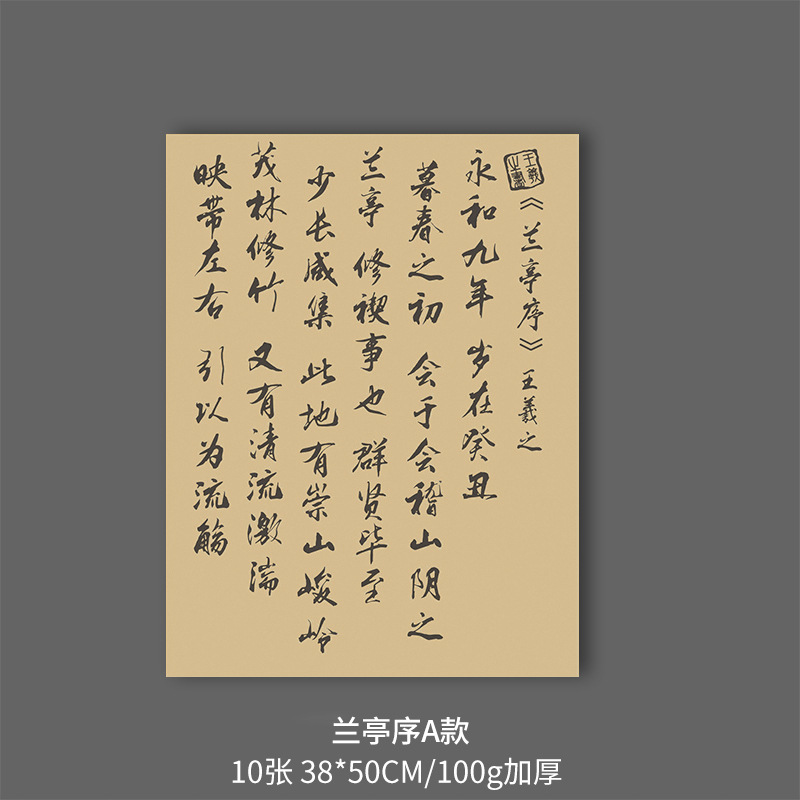 《兰亭序》王羲之
王羲之书
永和九年 岁在癸丑
暮春之初 会于会稽山阴之
兰亭 修禊事也 群贤毕至
少长咸集 此地有崇山峻岭
茂林修竹 又有清流激湍
映带左右 引以为流觞
兰亭序A款
10张 38*50CM/100g加厚